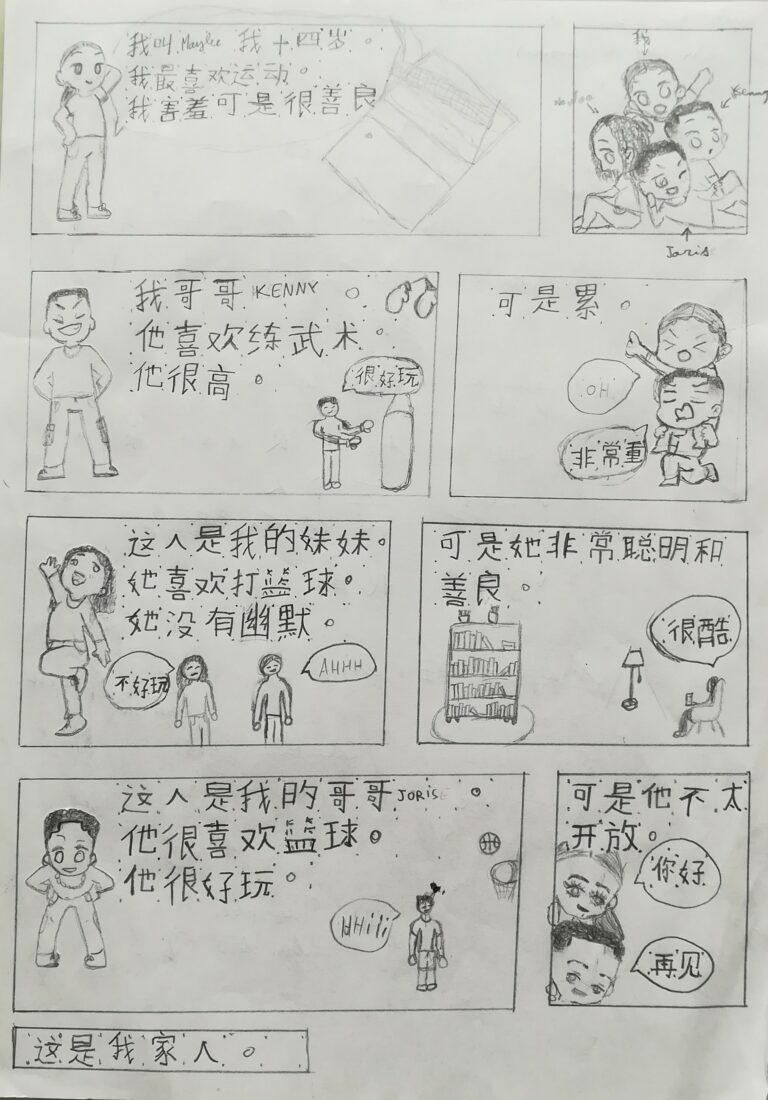 我叫 Maylee 我十四岁。
我最喜欢运动。
我害羞可是很善良
我
Kenny
Joris
我哥哥 KENNY 。
他喜欢练武术。
他很高。
很好玩
可是累。
OH
非常重
这人是我的妹妹。
她喜欢打篮球。
她没有幽默。
不好玩
AHHH
可是她非常聪明和
善良。
很酷
这人是我的哥哥 JORIS 。
他很喜欢篮球。
他很好玩。
HHiii
可是他不太
开放。
你好
再见
这是我家人。